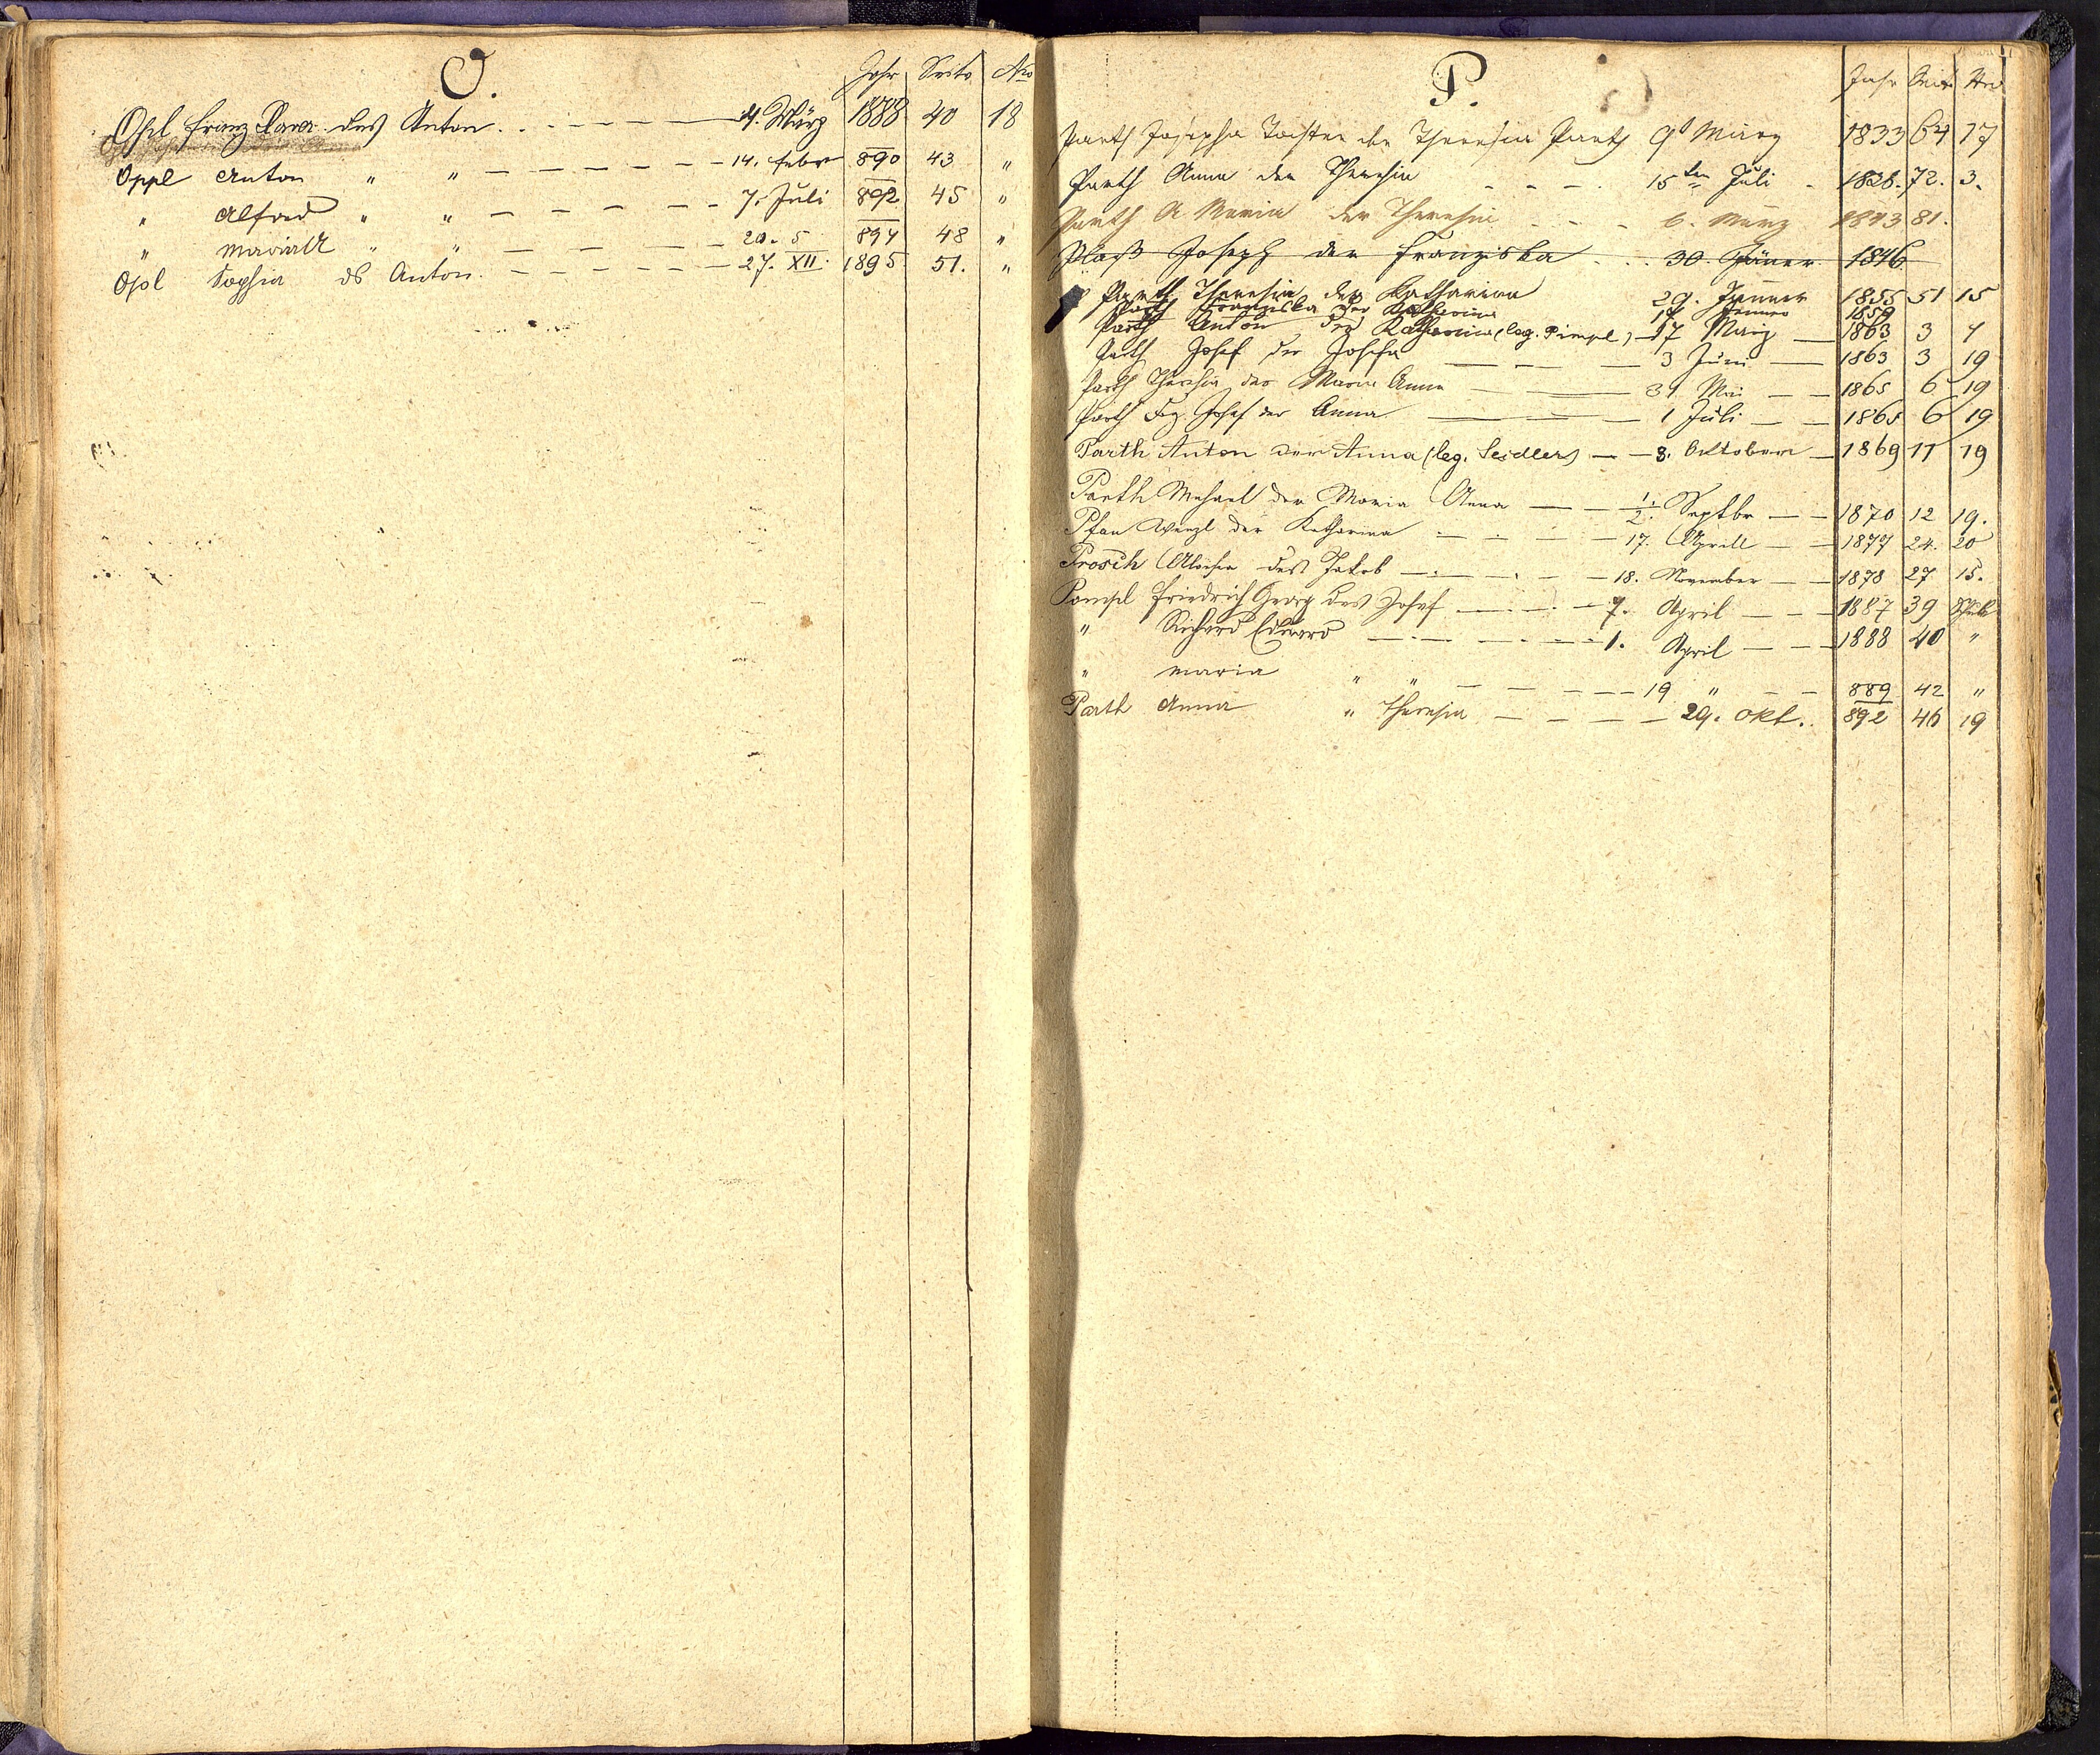 O.
Jahr Seite Nro
Opl Franz Xaver des Anton 4. März 1888 40 18
Oppl Anton " " 14. Febr 890 43 "
" Alfred " " 7. Juli 892 45 "
" " " 20. 5 894 48 "
Opl Sophia ds Anton 27. XII. 1895 51. "
P.
Jahr Seite Nro
Parth Josepha Tochter der Theresia Parth 9t März 1833 64 17
Parth Anna der Theresia 15ten Juli 72. 3.
Parth A Maria der Theresia 6. März 1843 81.
Plaß Joseph der Franziska 30. Jäner 1846
Parth Theresia der Katharina 29. Jänner 1855 51 15
Parth Franziska der Katharina Jänner 1859
Parth Anton der Katharina (leg. Pimpl) 17 März 1863 3 7
Parth Josef der Josefa 3 Juni 1863 3 19
Parth Theresia der Maria Anna 31 Mai 1865 6 19
Parth Frz. Josef der Anna 1 Juli 1865 6 19
Parth Anton der Anna (leg. Seidler) 8. Oktober 1869 11 19
Parth Michael der Maria Anna 1/2. Septbr 1870 12 19.
Pfan Wenzl der Katharina 17. April 1877 24. 20
Prosch Aloisia des Jakob 18. November 1878 27 15.
Pompl Friedrich Georg des Josef 7. April 1887 39
" Richard Eduard 1. April 1888 40 "
" Maria " " 19 " 889 42 "
Parth Anna " Theresia 29. Okt. 892 46 19